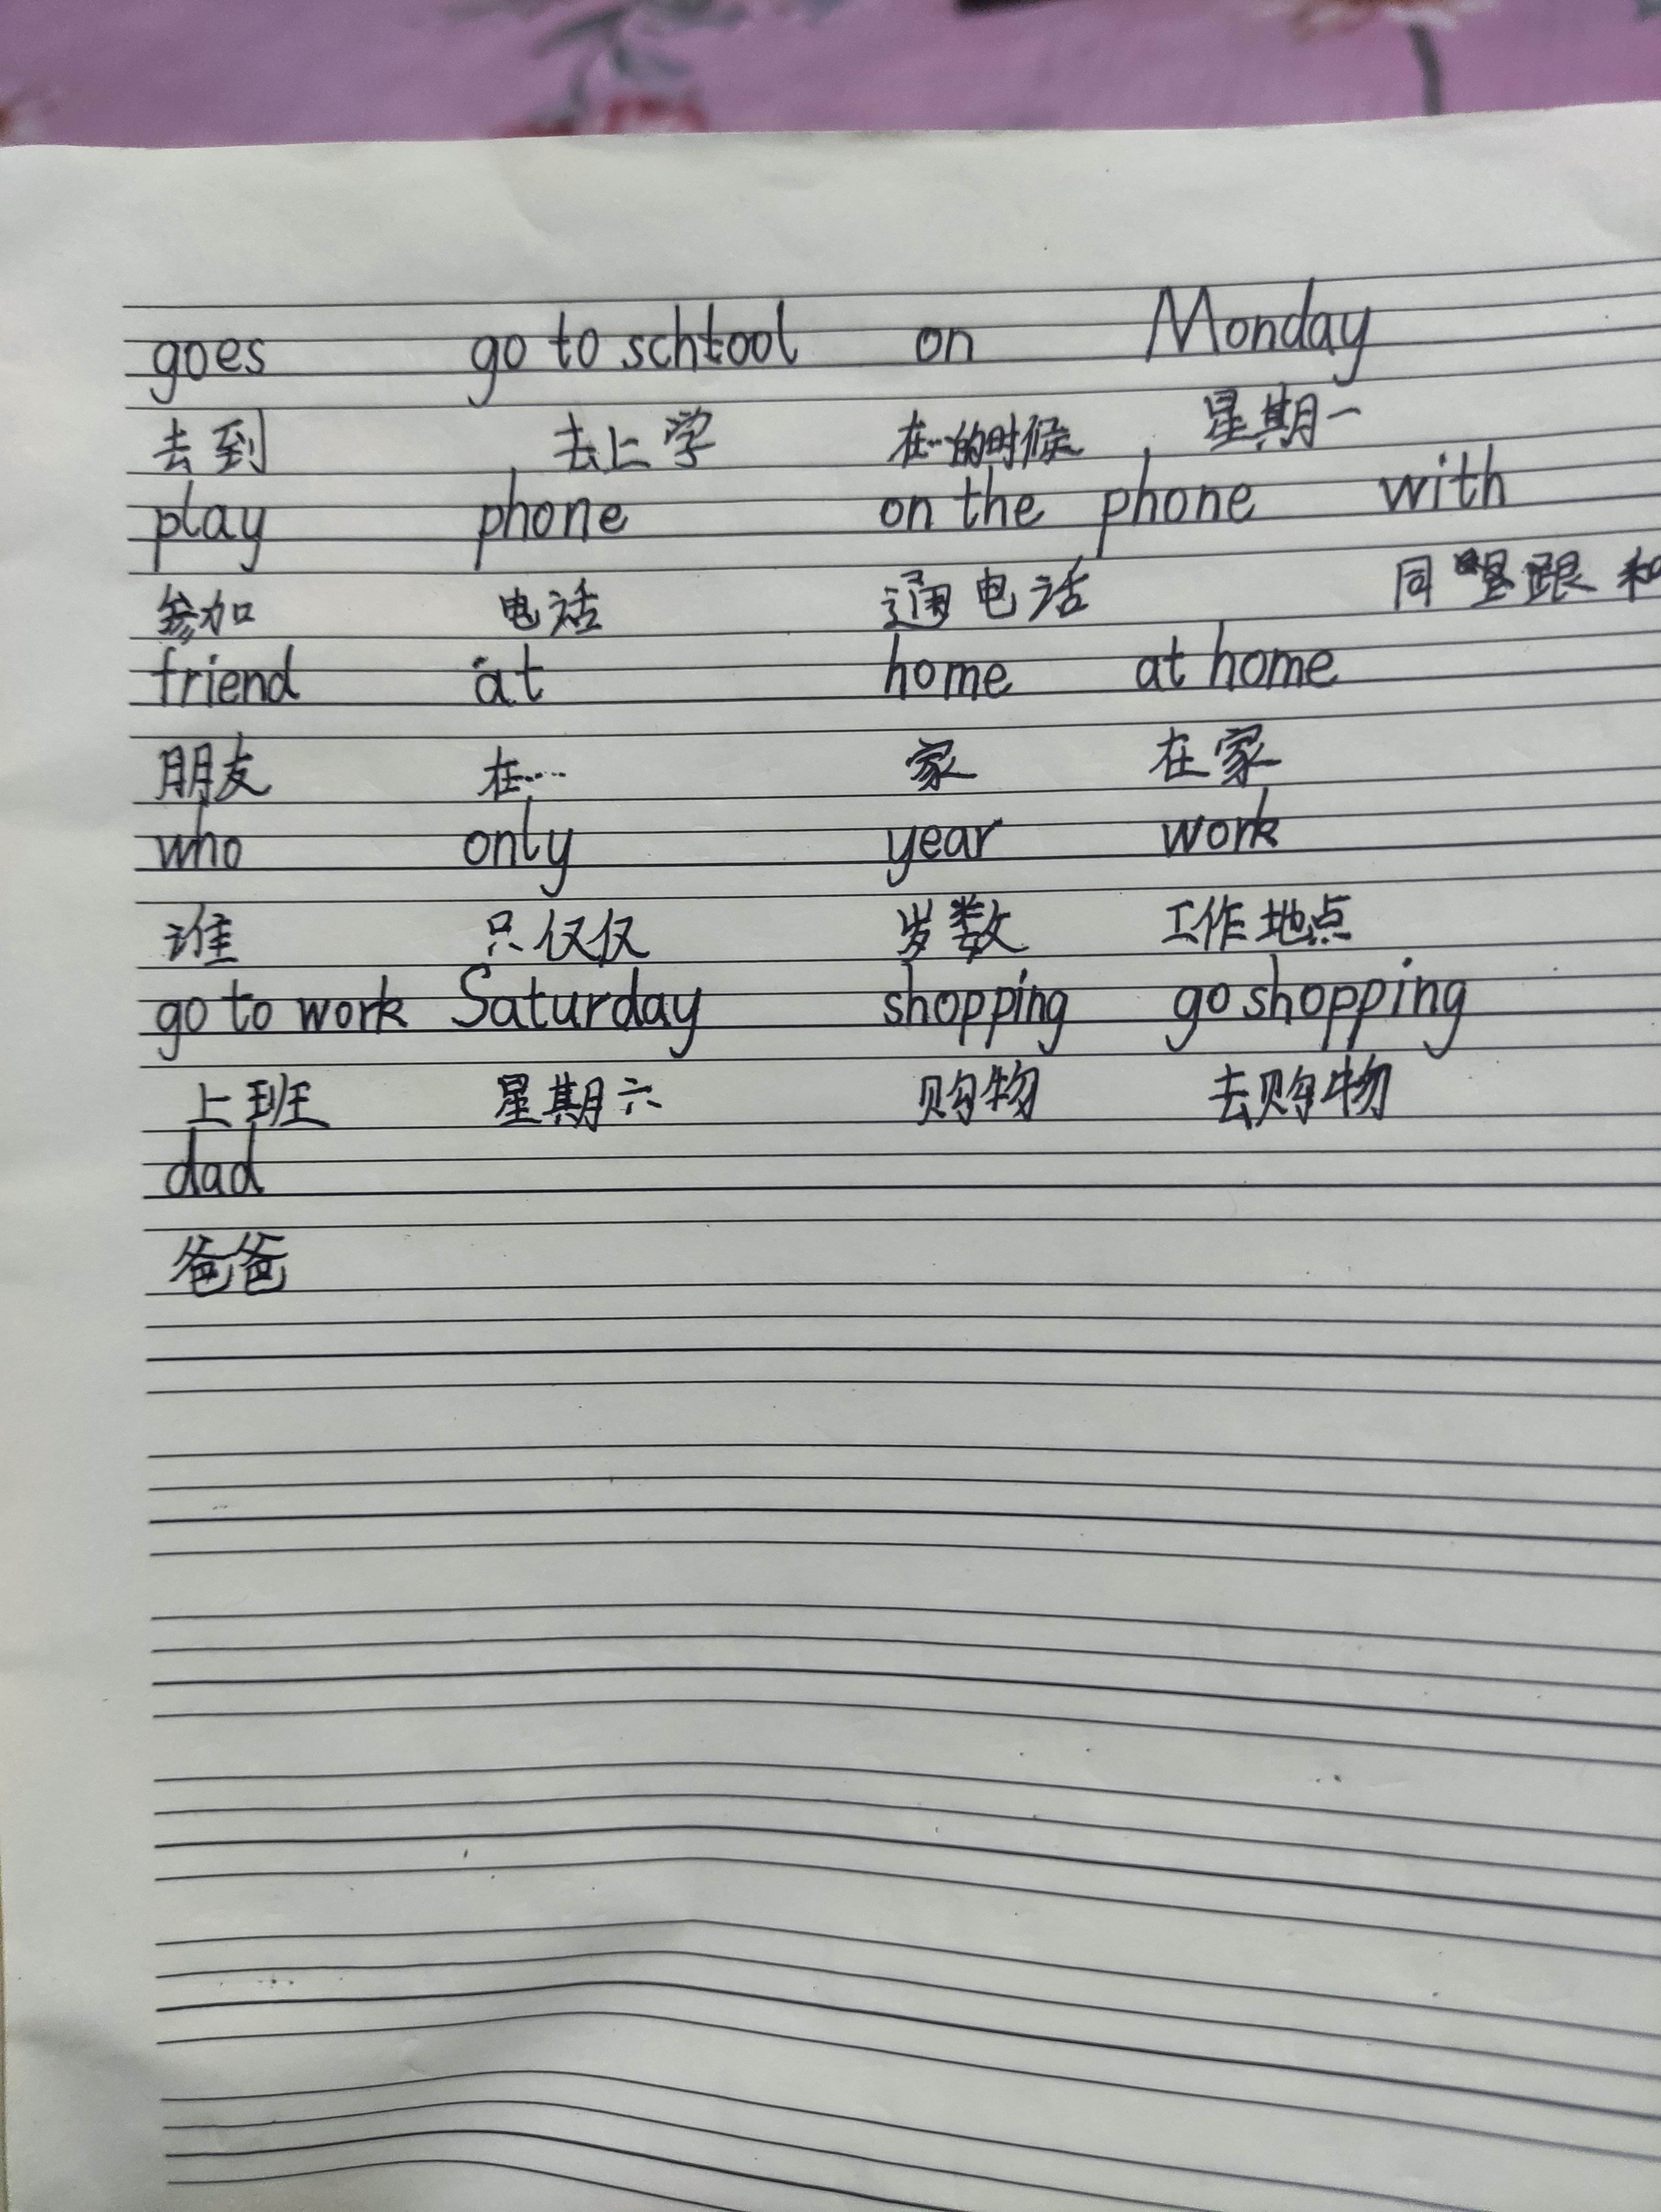 goes go to schtool on Monday
去到 去上学 在…的时候 星期一
play phone on the phone with
参加 电话 通电话 同 跟 和
friend at home at home
朋友 在… 家 在家
who only year work
谁 只仅仅 岁数 工作地点
go to work Saturday shopping go shopping
上班 星期六 购物 去购物
dad
爸爸